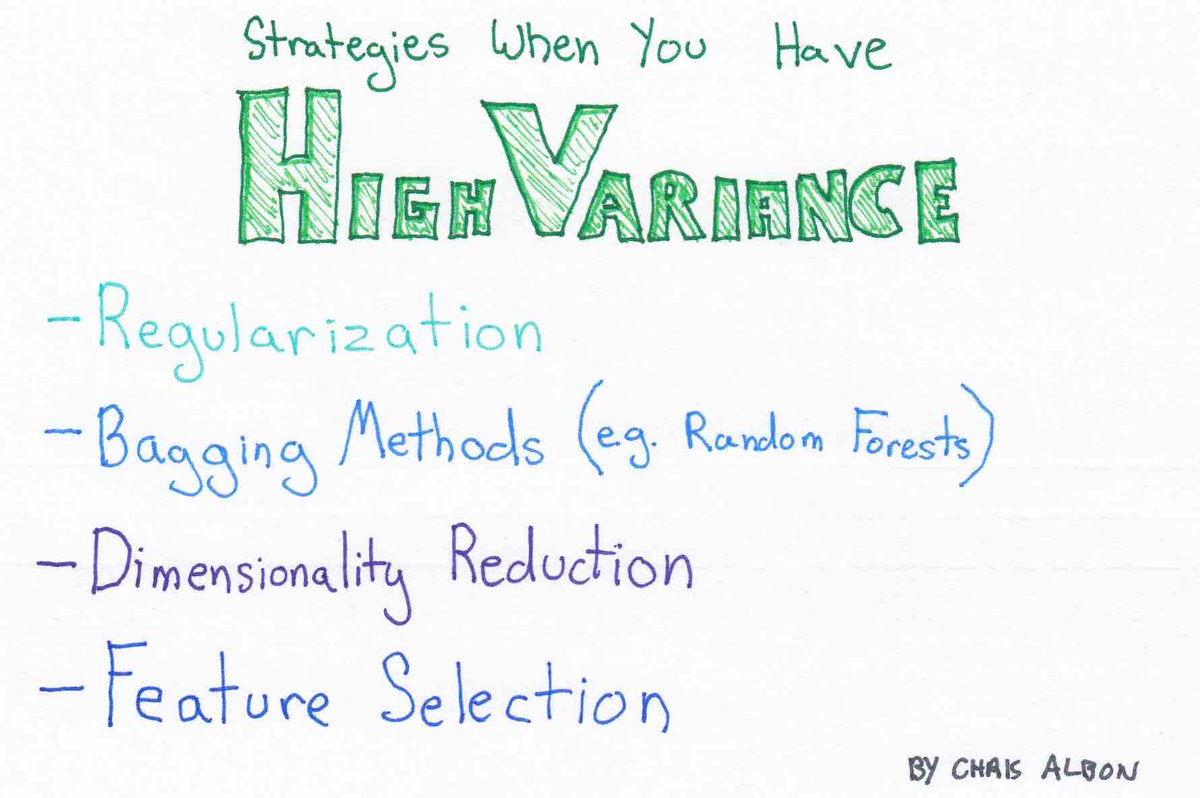 Strategies When You Have
HIGH VARIANCE
- Regularization
- Bagging Methods (e.g. Random Forests)
- Dimensionality Reduction
- Feature Selection
BY CHRIS ALBON